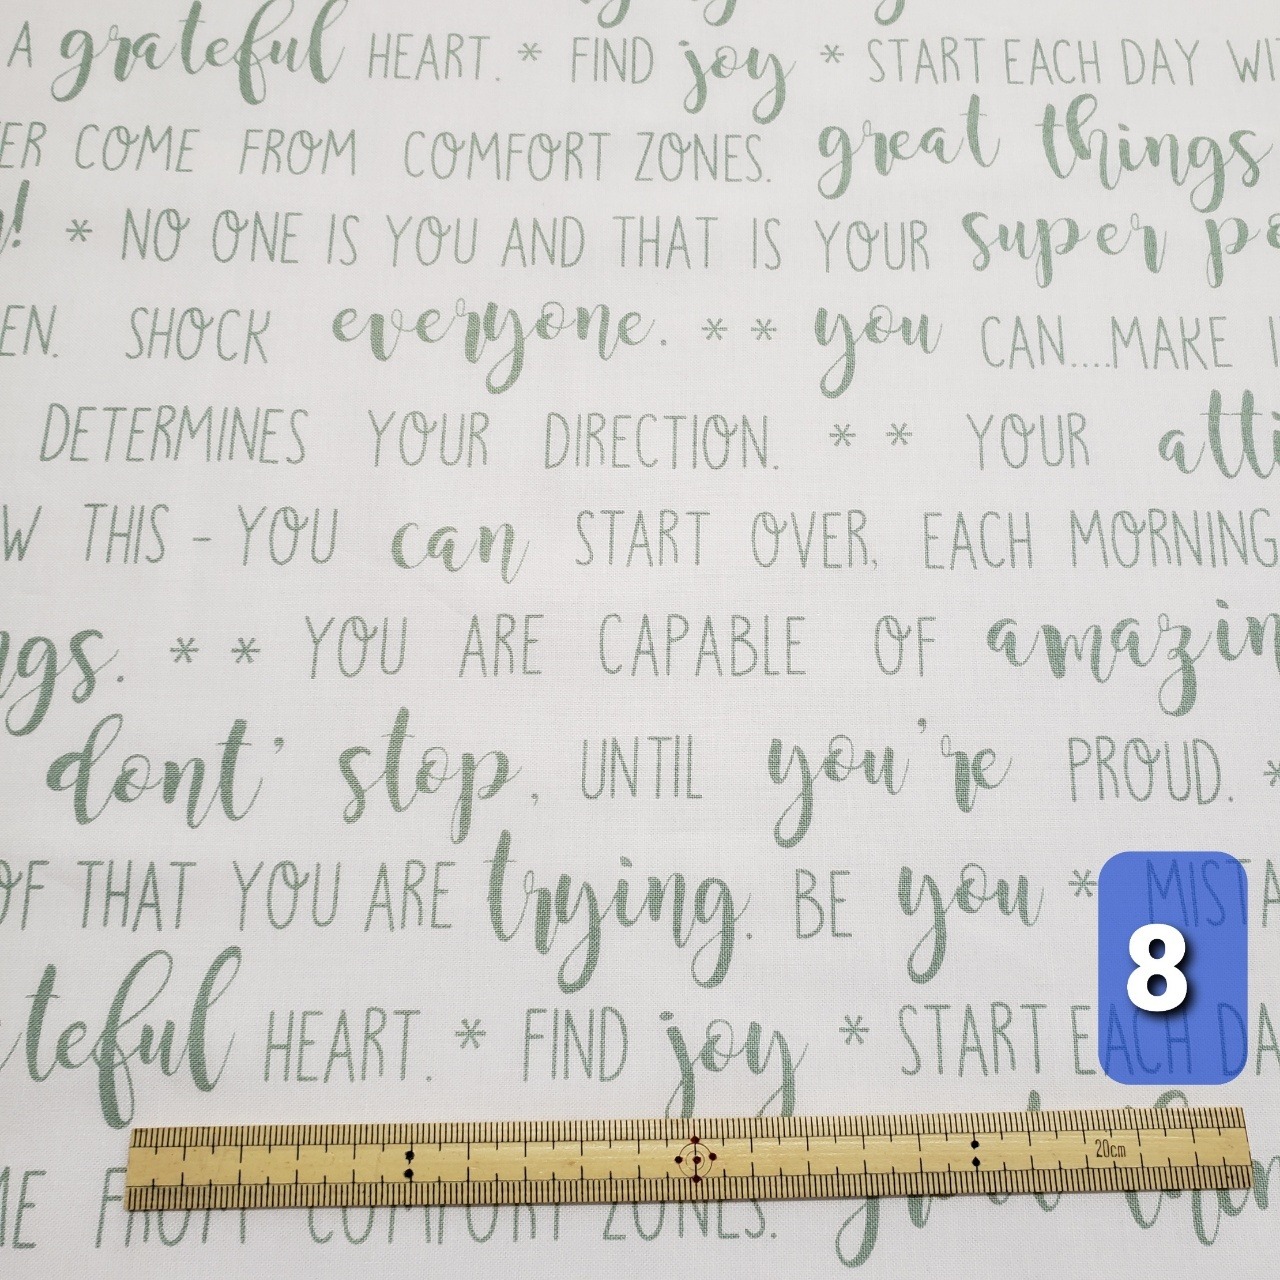 A grateful HEART. * FIND joy * START EACH DAY WI
ER COME FROM COMFORT ZONES. great things
! * NO ONE IS YOU AND THAT IS YOUR super po
EN. SHOCK everyone. * * you CAN....MAKE I
DETERMINES YOUR DIRECTION. * * YOUR atti
W THIS - YOU can START OVER, EACH MORNING
ngs. * * YOU ARE CAPABLE OF amazin
dont' stop, UNTIL you're PROUD. *
OF THAT YOU ARE trying. BE you * MISTA
teful HEART. * FIND joy * START EACH DA
8
20cm
ME FROM COMFORT ZONES.